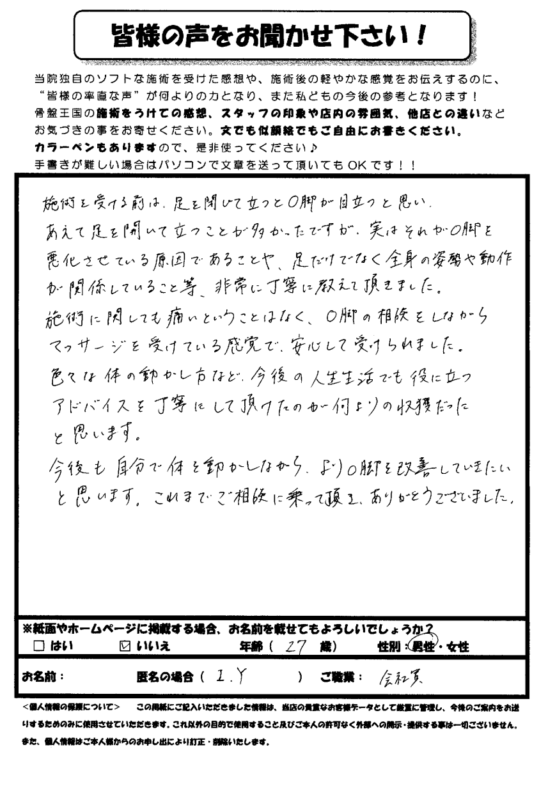 皆様の声をお聞かせ下さい！
当院独自のソフトな施術を受けた感想や、施術後の軽やかな感覚をお伝えするのに、
“皆様の率直な声”が何よりの力となり、また私どもの今後の参考となります！
骨盤王国の施術をうけての感想、スタッフの印象や店内の雰囲気、他店との違いなど
お気づきの事をお寄せください。文でも似顔絵でもご自由にお書きください。
カラーペンもありますので、是非使ってください♪
手書きが難しい場合はパソコンで文章を送って頂いてもOKです！！
施術を受ける前は、足を閉じて立つとO脚が目立つと思い、
あえて足を開いて立つことが多かったですが、実はそれがO脚を
悪化させている原因であることや、足だけでなく全身の姿勢や動作
が関係していること等、非常に丁寧に教えて頂きました。
施術に関しても痛いということはなく、O脚の相談をしながら
マッサージを受けている感覚で、安心して受けられました。
色々な体の動かし方など、今後の人生生活でも役に立つ
アドバイスを丁寧にして頂けたのが何よりの収穫だった
と思います。
今後も自分で体を動かしながら、よりO脚を改善していきたい
と思います。これまでご相談に乗って頂き、ありがとうございました。
※紙面やホームページに掲載する場合、お名前を載せてもよろしいでしょうか？
□ はい ☑ いいえ 年齢（ 27 歳） 性別：男性・女性
お名前： 匿名の場合（ I.Y ） ご職業： 会社員
＜個人情報の保護について＞ この用紙にご記入いただきました情報は、当店の貴重なお客様データとして厳重に管理し、今後のご案内をお送
りするためのみに使用させていただきます。これ以外の目的で使用すること及びご本人の許可なく外部への開示・提供する事は一切ございません。
また、個人情報はご本人様からのお申し出により訂正・削除いたします。